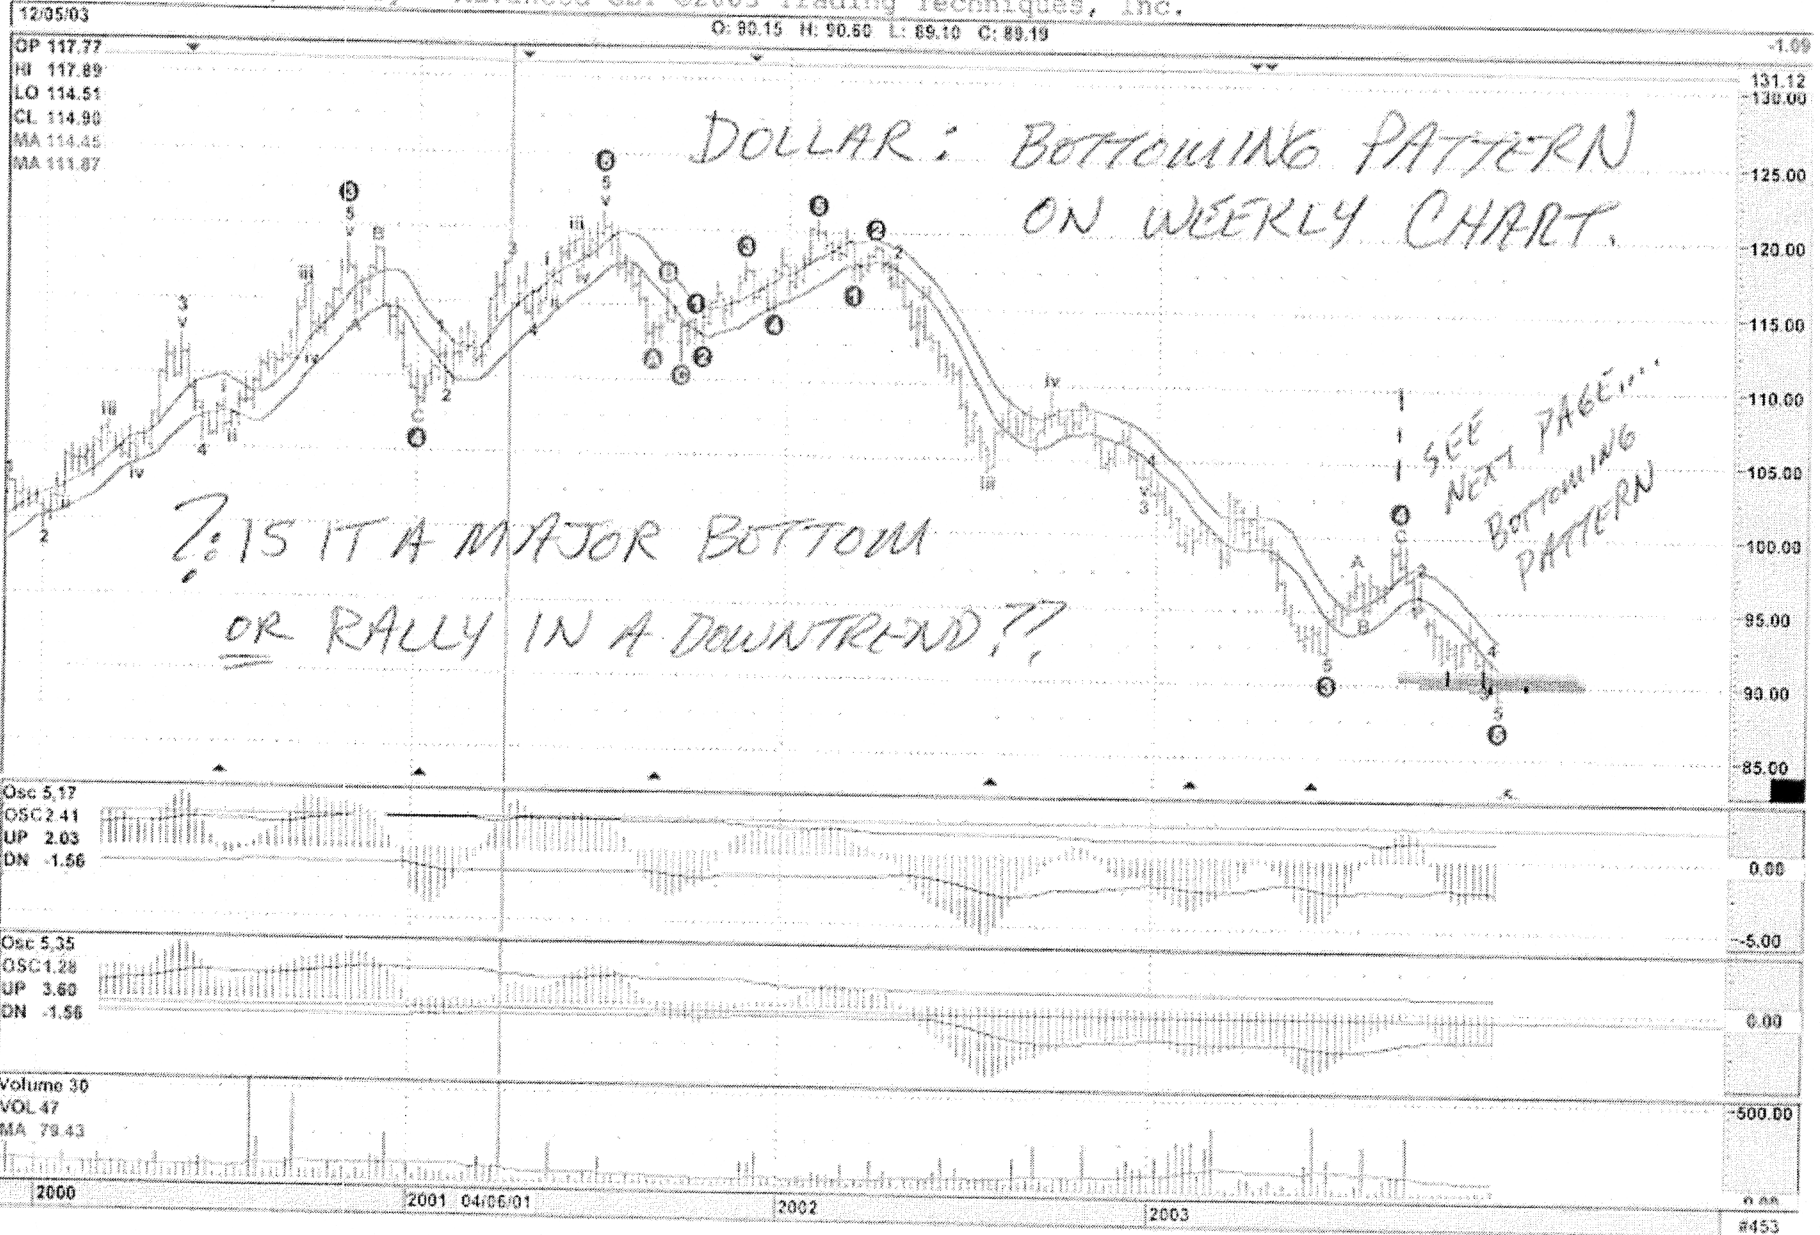 Advanced GET ©2003 Trading Techniques, Inc.
12/05/03
O: 90.15 H: 90.60 L: 89.10 C: 89.19
-1.09
OP 117.77
HI 117.89
LO 114.51
CL 114.90
MA 114.45
MA 111.87
131.12
130.00
125.00
120.00
115.00
110.00
105.00
100.00
95.00
90.00
85.00
DOLLAR: BOTTOMING PATTERN
ON WEEKLY CHART.
?: IS IT A MAJOR BOTTOM
OR RALLY IN A DOWNTREND??
SEE
NEXT PAGE....
BOTTOMING
PATTERN
Osc 5,17
OSC 2.41
UP 2.03
DN -1.56
0.00
-5.00
Osc 5,35
OSC 1.28
UP 3.60
DN -1.56
0.00
Volume 30
VOL 47
MA 79.43
500.00
0.00
2000
2001 04/06/01
2002
2003
#453